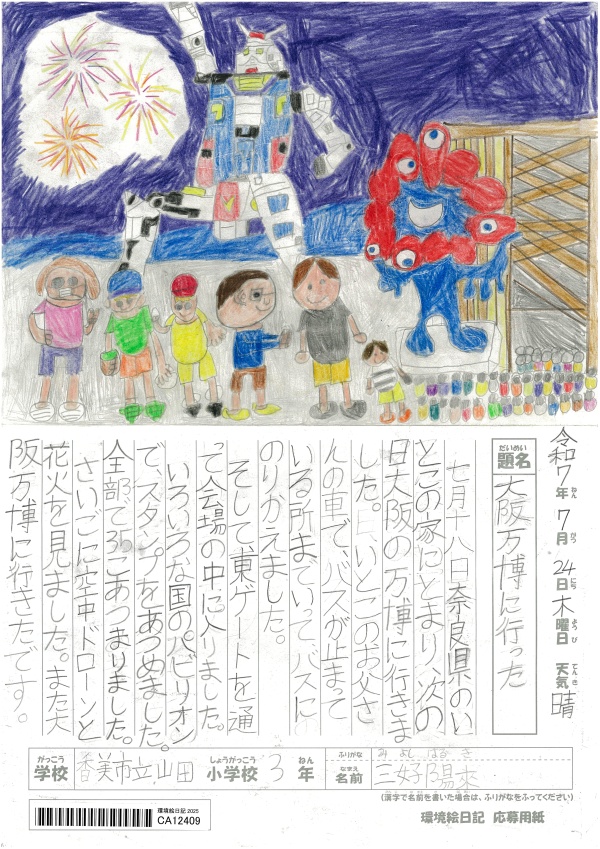 令和7年 7月 24日 木曜日 天気 晴
題名 大阪万博に行った
七月十八日奈良県のい
とこの家にとまり、次の
日大阪の万博に行きま
した。日、いとこのお父さ
んの車で、バスが止まって
いる所までいって、バスに
のりかえました。
そして東ゲートを通
って会場の中に入りました。
いろいろな国のパビリオン
で、スタンプをあつめました。
全部で35こあつまりました。
さいごに空中ドローンと
花火を見ました。また大
阪万博に行きたです。
学校 香美市立山田 小学校 3年 名前 三好陽來
ふりがな みよし はるき
(漢字で名前を書いた場合は、ふりがなをふってください)
環境絵日記 2025
CA12409
環境絵日記 応募用紙